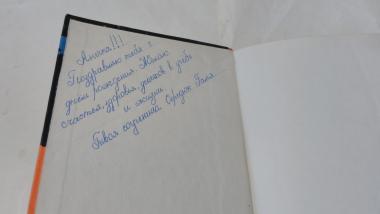 Анечка!!!
Поздравляю тебя с
днём рождения. Желаю
счастья, здоровья, успехов в учёбе
и жизни.
Твоя соученица Середюк Галя.